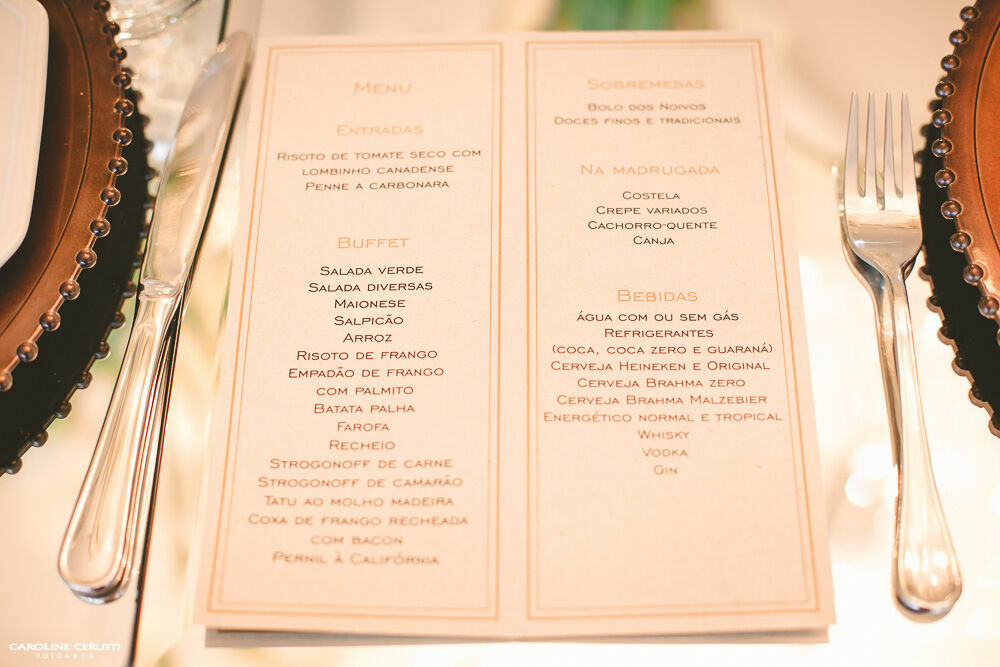 Menu
Entradas
Risoto de tomate seco com
lombinho canadense
Penne a carbonara
Buffet
Salada verde
Salada diversas
Maionese
Salpicão
Arroz
Risoto de frango
Empadão de frango
com palmito
Batata palha
Farofa
Recheio
Strogonoff de carne
Strogonoff de camarão
Tatu ao molho madeira
Coxa de frango recheada
com bacon
Pernil à Califórnia
Sobremesas
Bolo dos Noivos
Doces finos e tradicionais
Na madrugada
Costela
Crepe variados
Cachorro-quente
Canja
Bebidas
água com ou sem gás
Refrigerantes
(coca, coca zero e guaraná)
Cerveja Heineken e Original
Cerveja Brahma zero
Cerveja Brahma Malzebier
Energético normal e tropical
Whisky
Vodka
Gin
CAROLINE CERUTTI
FOTOARTE